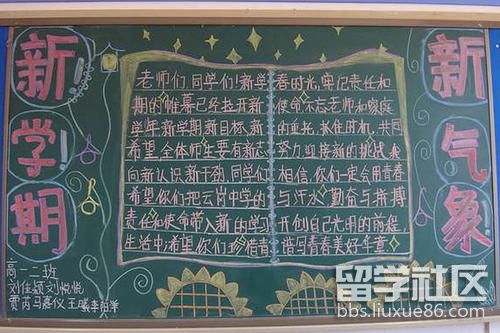 新学期
新气象
老师们 同学们！新学
期的帷幕已经拉开新
学年新学期新目标、新
希望全体师生要有新志
向新认识新干劲.同学们
希望你们把云岗中学的
责任和使命带入新的学习
生活中;希望你们珍惜青
春时光,牢记责任和
使命不忘老师和家庭
的重托.抓住时机,共同
努力迎接新的挑战
相信,你们一定会用青春
与汗水 勤奋与拼搏
开创自己光明的前程,
谱写青春美好华章
高一二班
刘佳颖 刘悦悦
贾芮 马嘉仪 王曦 李
留学社区
bbs.liuxue86.com